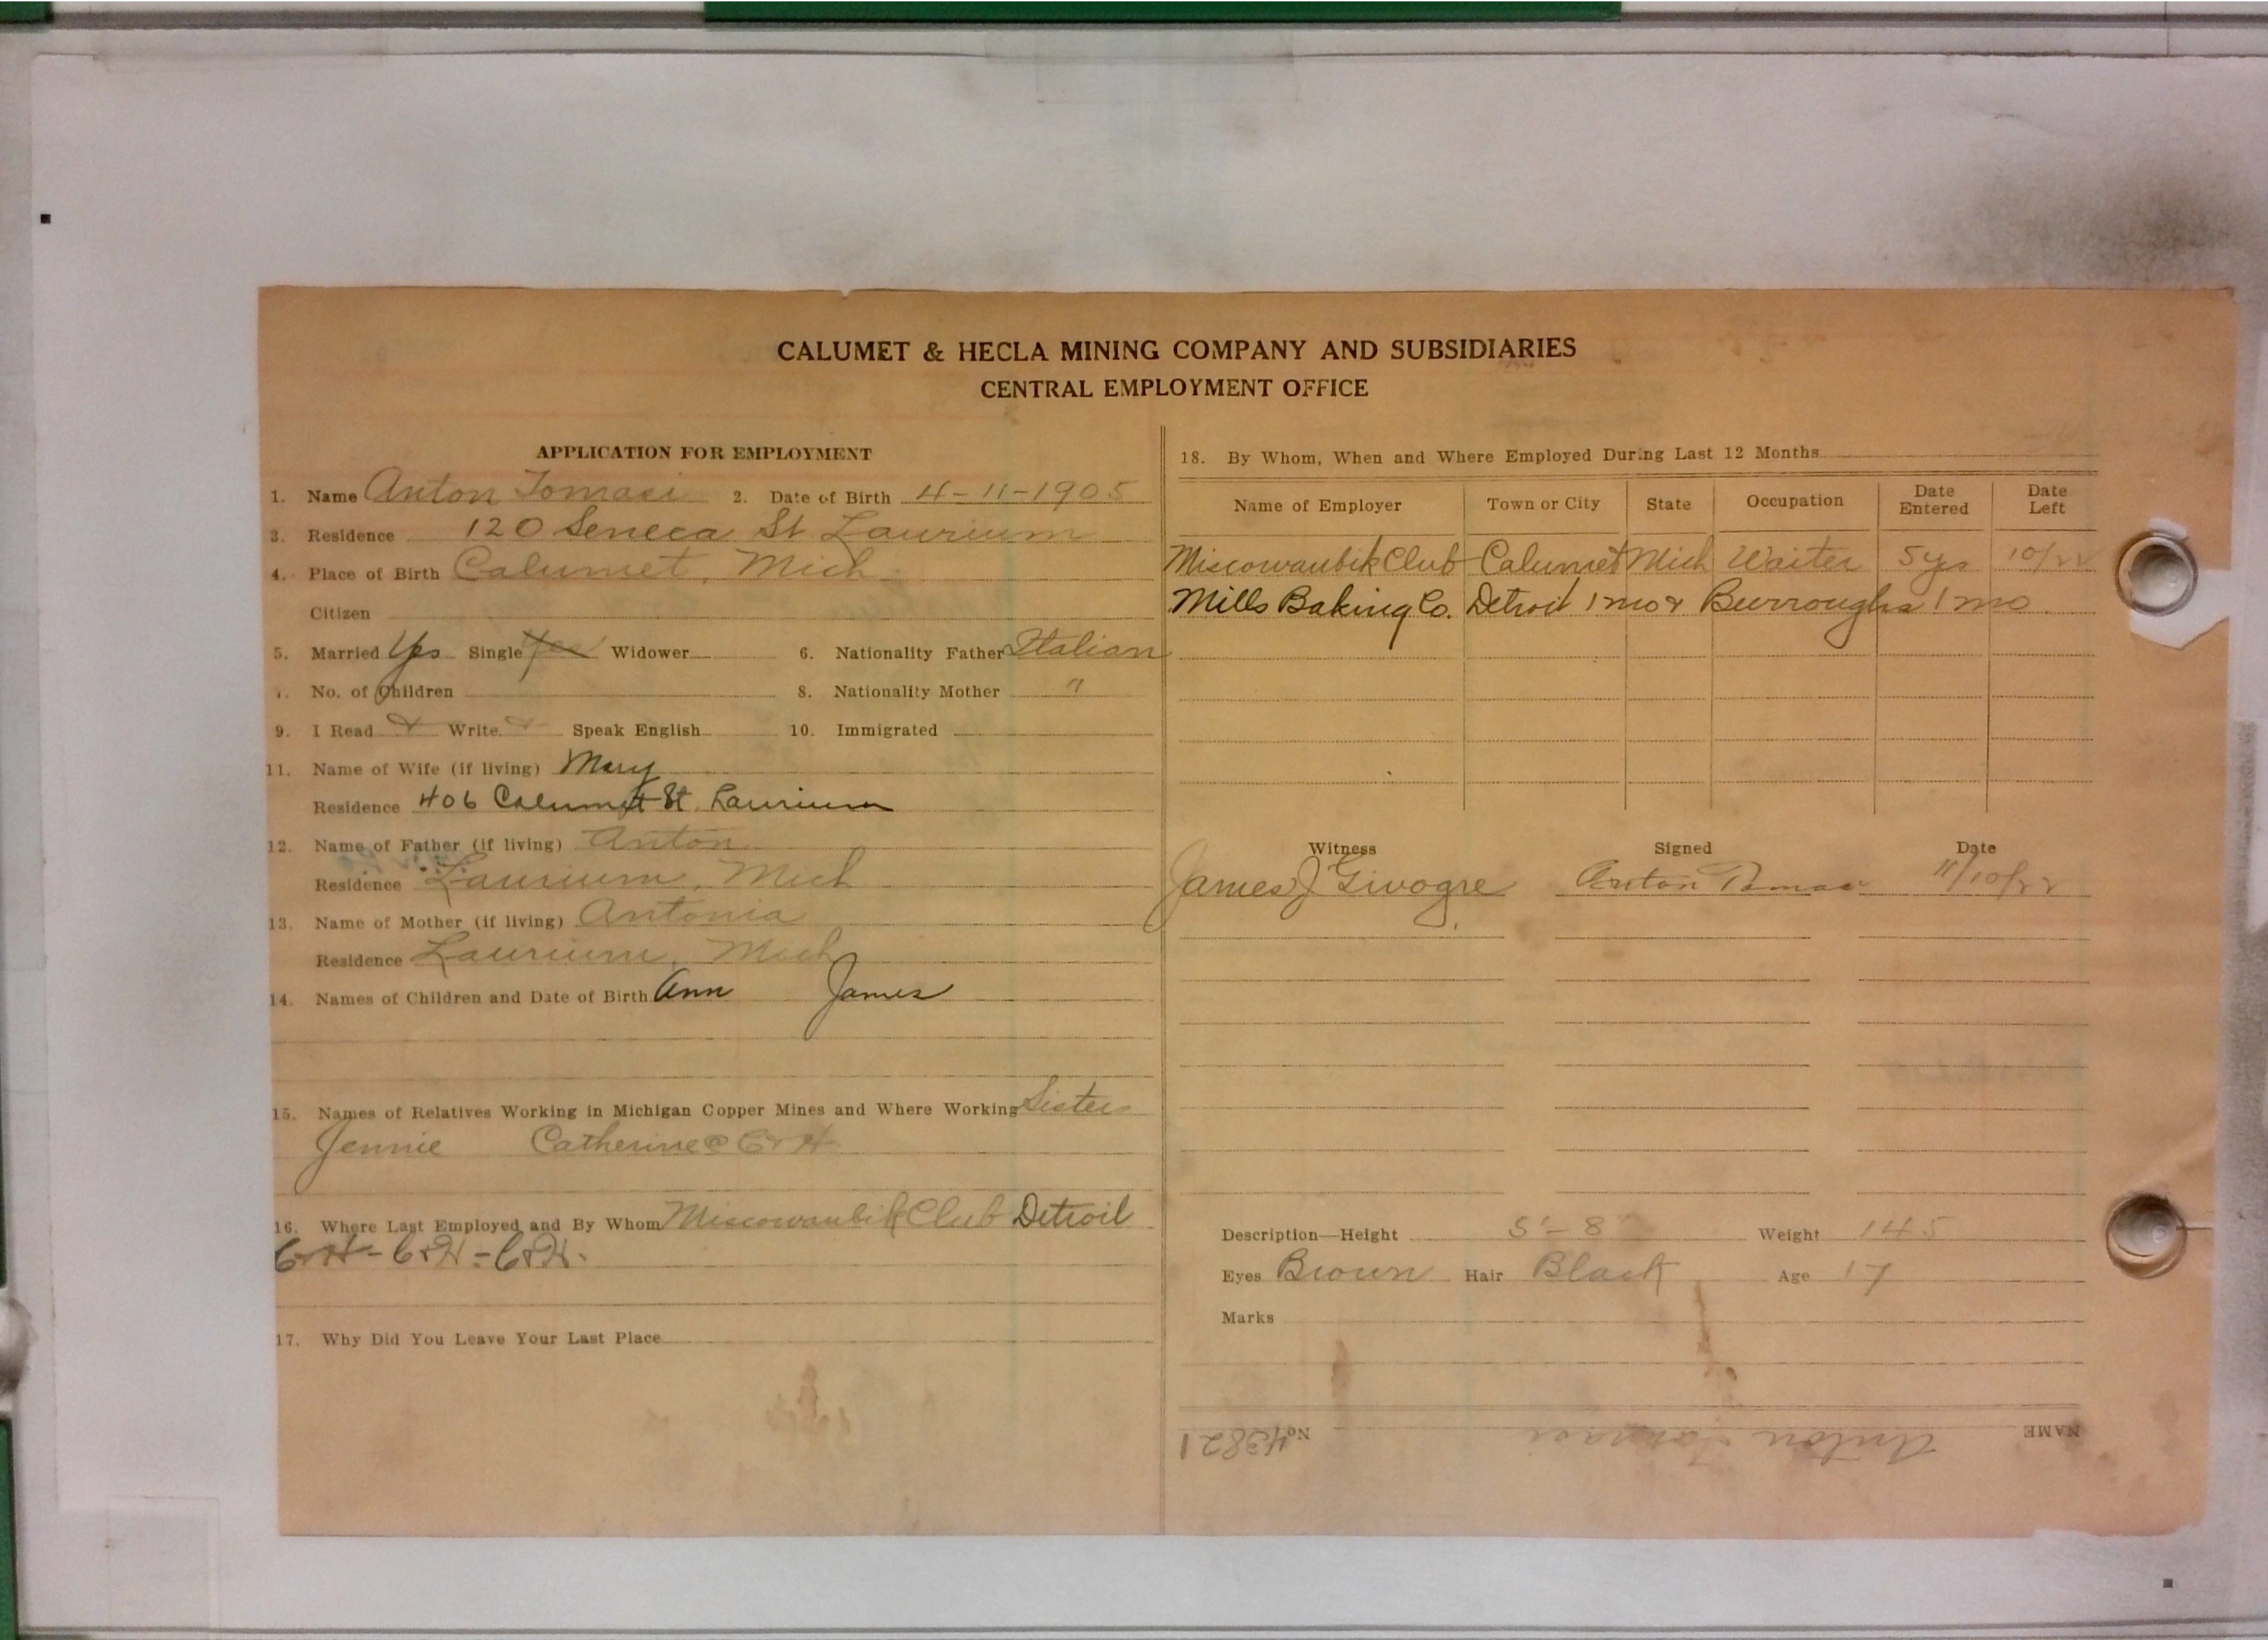 CALUMET & HECLA MINING COMPANY AND SUBSIDIARIES
CENTRAL EMPLOYMENT OFFICE
APPLICATION FOR EMPLOYMENT
1. Name Anton Tomasi 2. Date of Birth 4-11-1905
3. Residence 120 Seneca St Laurium
4. Place of Birth Calumet, Mich
Citizen
5. Married Yes Single Yes Widower 6. Nationality Father Italian
No. of Children 8. Nationality Mother "
9. I Read Write Speak English 10. Immigrated
11. Name of Wife (if living) Mary
Residence 406 Calumet St. Laurium
12. Name of Father (if living) Anton
Residence Laurium, Mich
13. Name of Mother (if living) Antonia
Residence Laurium, Mich
14. Names of Children and Date of Birth Ann James
15. Names of Relatives Working in Michigan Copper Mines and Where Working Sister
Jennie Catherine @ C & H
16. Where Last Employed and By Whom Miscowaubik Club Detroit
C & H - C & H - C & H.
17. Why Did You Leave Your Last Place
18. By Whom, When and Where Employed During Last 12 Months
Name of Employer Town or City State Occupation Date Entered Date Left
Miscowaubik Club Calumet Mich Waiter 5 yrs 10/22
Mills Baking Co. Detroit 1 mo & Burroughs 1 mo
Witness Signed Date
James J Givogre Anton Tomasi 11/10/22
Description—Height 5'-8" Weight 145
Eyes Brown Hair Black Age 17
Marks
NAME Anton Tomasi No. 43821